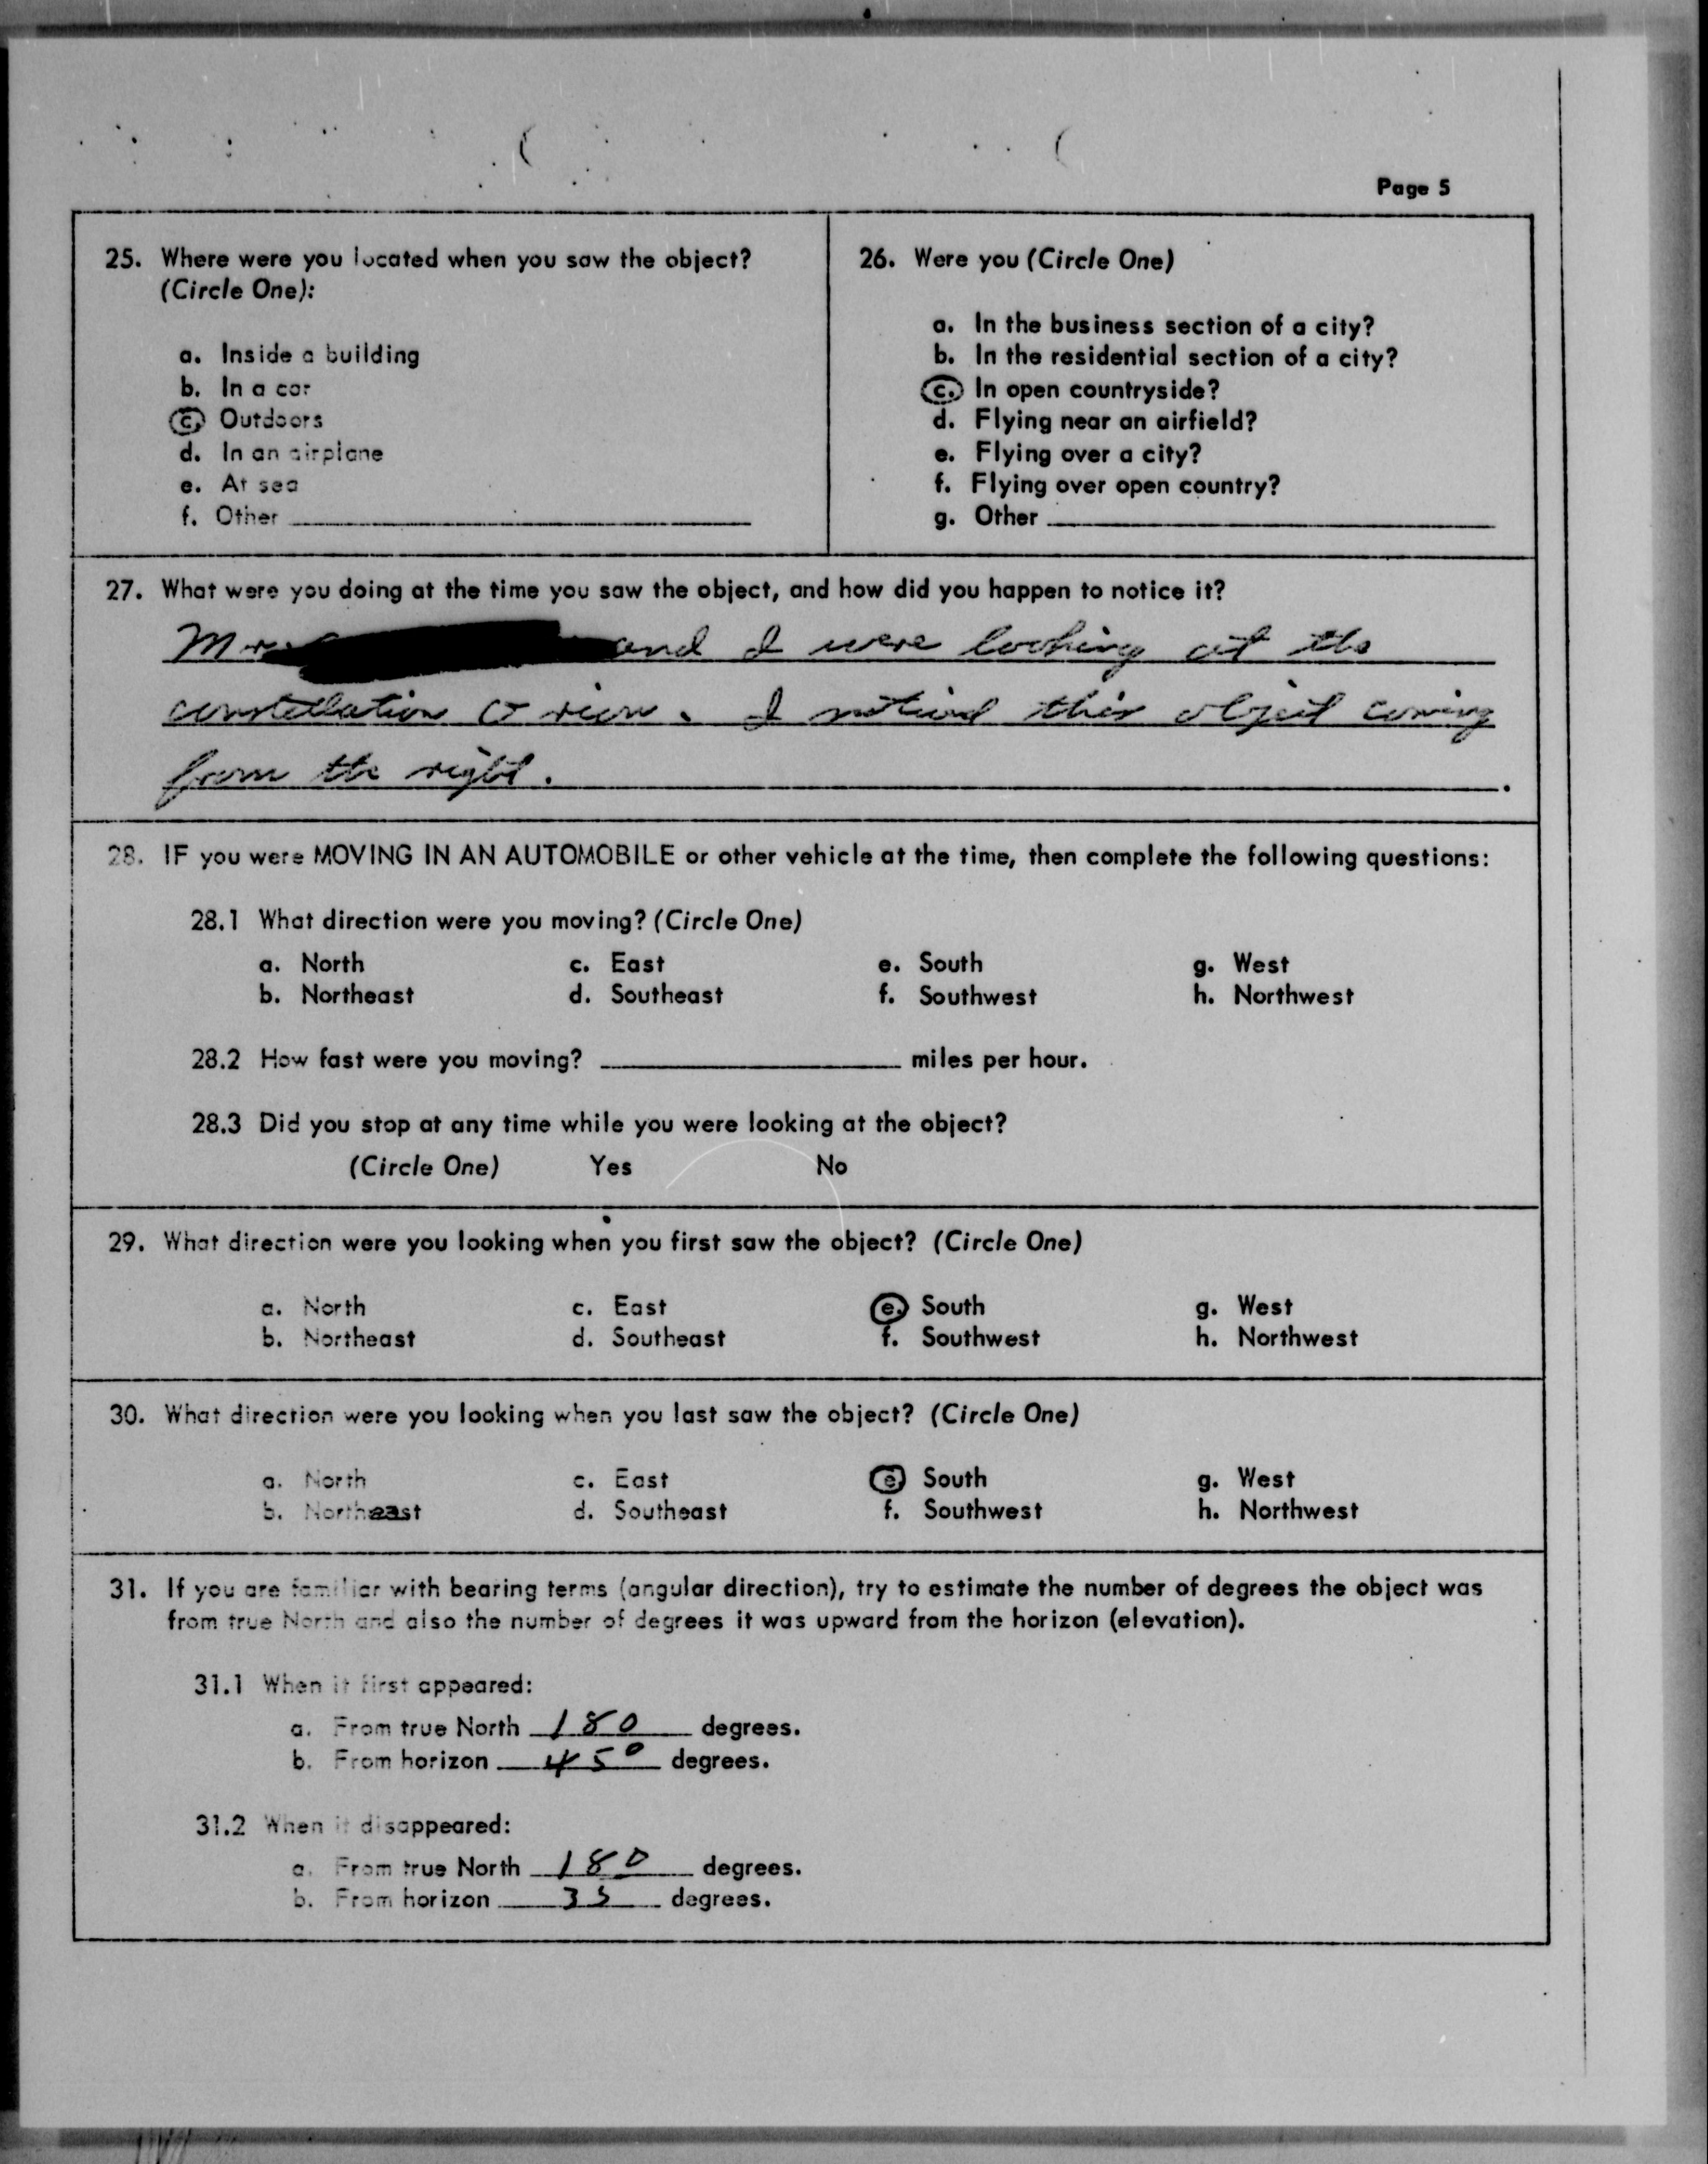 Page 5
25. Where were you located when you saw the object?
(Circle One):
a. Inside a building
b. In a car
c. Outdoors
d. In an airplane
e. At sea
f. Other
26. Were you (Circle One)
a. In the business section of a city?
b. In the residential section of a city?
c. In open countryside?
d. Flying near an airfield?
e. Flying over a city?
f. Flying over open country?
g. Other
27. What were you doing at the time you saw the object, and how did you happen to notice it?
and I were looking at the
constellation Orion. I noticed this object coming
from the right.
28. IF you were MOVING IN AN AUTOMOBILE or other vehicle at the time, then complete the following questions:
28.1 What direction were you moving? (Circle One)
a. North c. East e. South g. West
b. Northeast d. Southeast f. Southwest h. Northwest
28.2 How fast were you moving? miles per hour.
28.3 Did you stop at any time while you were looking at the object?
(Circle One) Yes No
29. What direction were you looking when you first saw the object? (Circle One)
a. North c. East e. South g. West
b. Northeast d. Southeast f. Southwest h. Northwest
30. What direction were you looking when you last saw the object? (Circle One)
a. North c. East e. South g. West
b. Northeast d. Southeast f. Southwest h. Northwest
31. If you are familiar with bearing terms (angular direction), try to estimate the number of degrees the object was
from true North and also the number of degrees it was upward from the horizon (elevation).
31.1 When it first appeared:
a. From true North 180 degrees.
b. From horizon 45° degrees.
31.2 When it disappeared:
a. From true North 180 degrees.
b. From horizon 35 degrees.